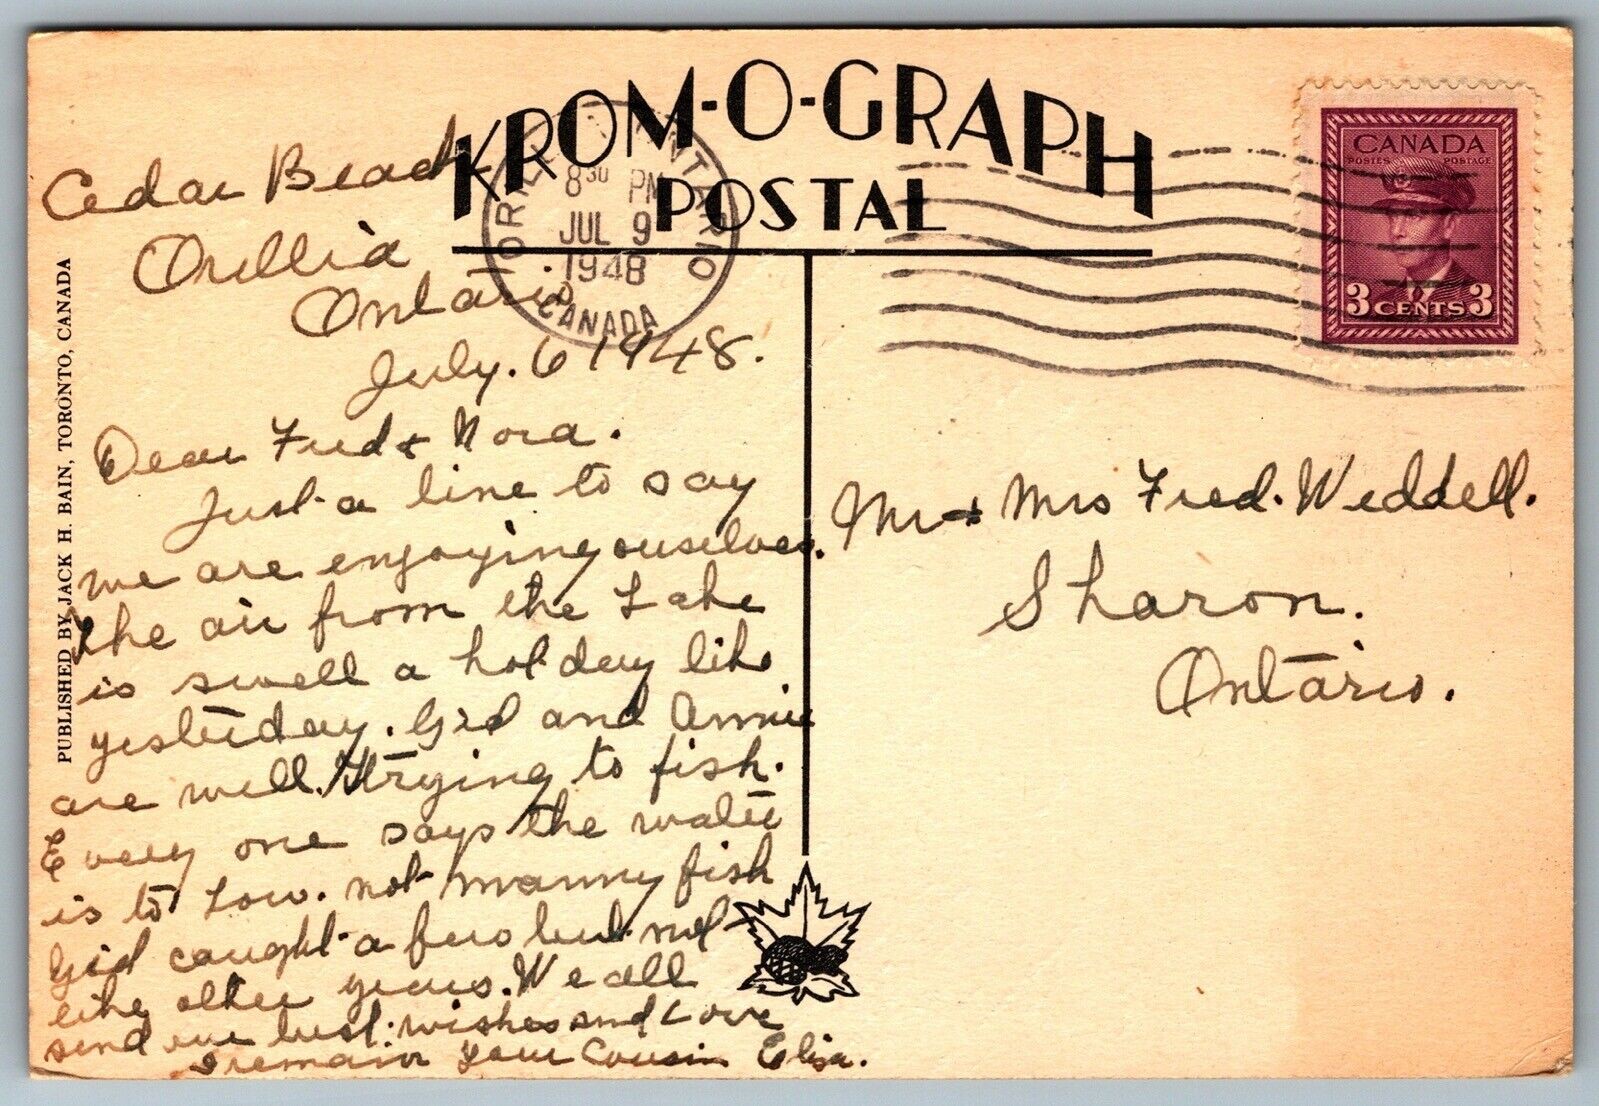 KROM-O-GRAPH
POSTAL
ORILLIA ONTARIO
8 30 PM
JUL 9
1948
CANADA
CANADA
POSTES POSTAGE
3 CENTS 3
PUBLISHED BY JACK H. BAIN, TORONTO, CANADA
Cedar Beach
Orillia
Ontario.
July. 6 1948.
Dear Fred & Nora.
Just a line to say
we are enjoying ourselves.
The air from the Lake
is swell a holday like
yesterday. Gid and Annie
are well. trying to fish.
Every one says the water
is to Low. not manny fish
Gid caught a few but not
like other years. We all
send our best wishes and Love
I remain your Cousin Eliza.
Mr & Mrs Fred. Weddell.
Sharon.
Ontario.